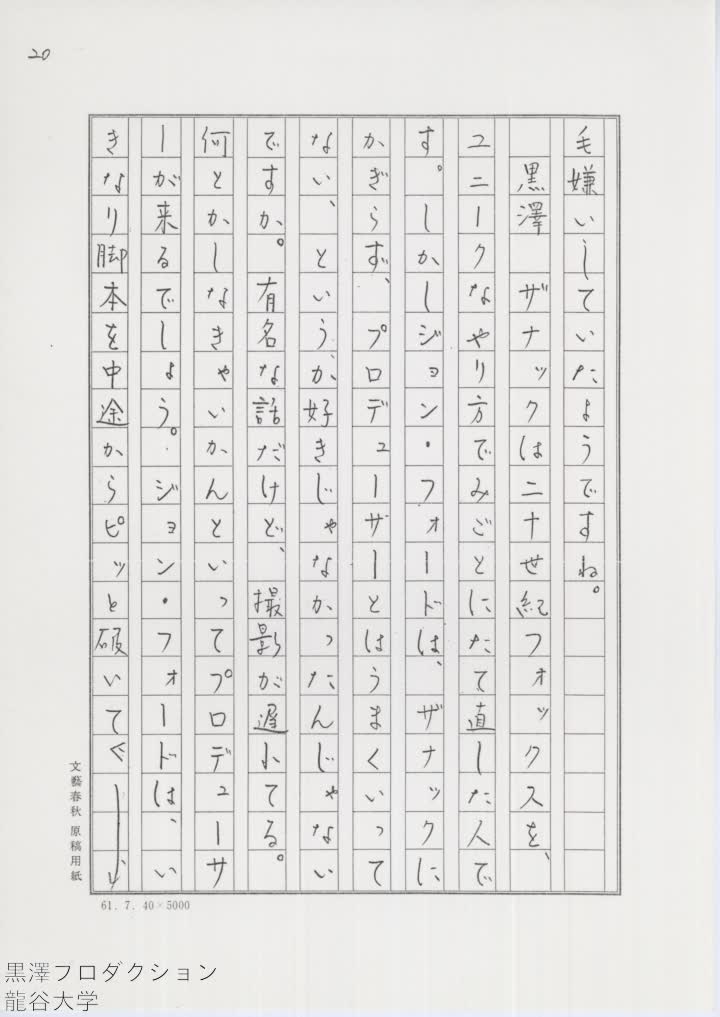 20
毛嫌いしていたようですね。
黒澤　ザナックは二十せ紀フォックスを、
ユニークなやり方でみごとにたて直した人で
す。しかしジョン・フォードは、ザナックに
かぎらず、プロデューサーとはうまくいって
ない、というか、好きじゃなかったんじゃない
ですか。有名な話だけど、撮影が遅れてる。
何とかしなきゃいかんといってプロデューサ
ーが来るでしょう。ジョン・フォードは、い
きなり脚本を中途からピッと破いて
文藝春秋 原稿用紙
61. 7. 40×5000
黒澤フロダクション
龍谷大学